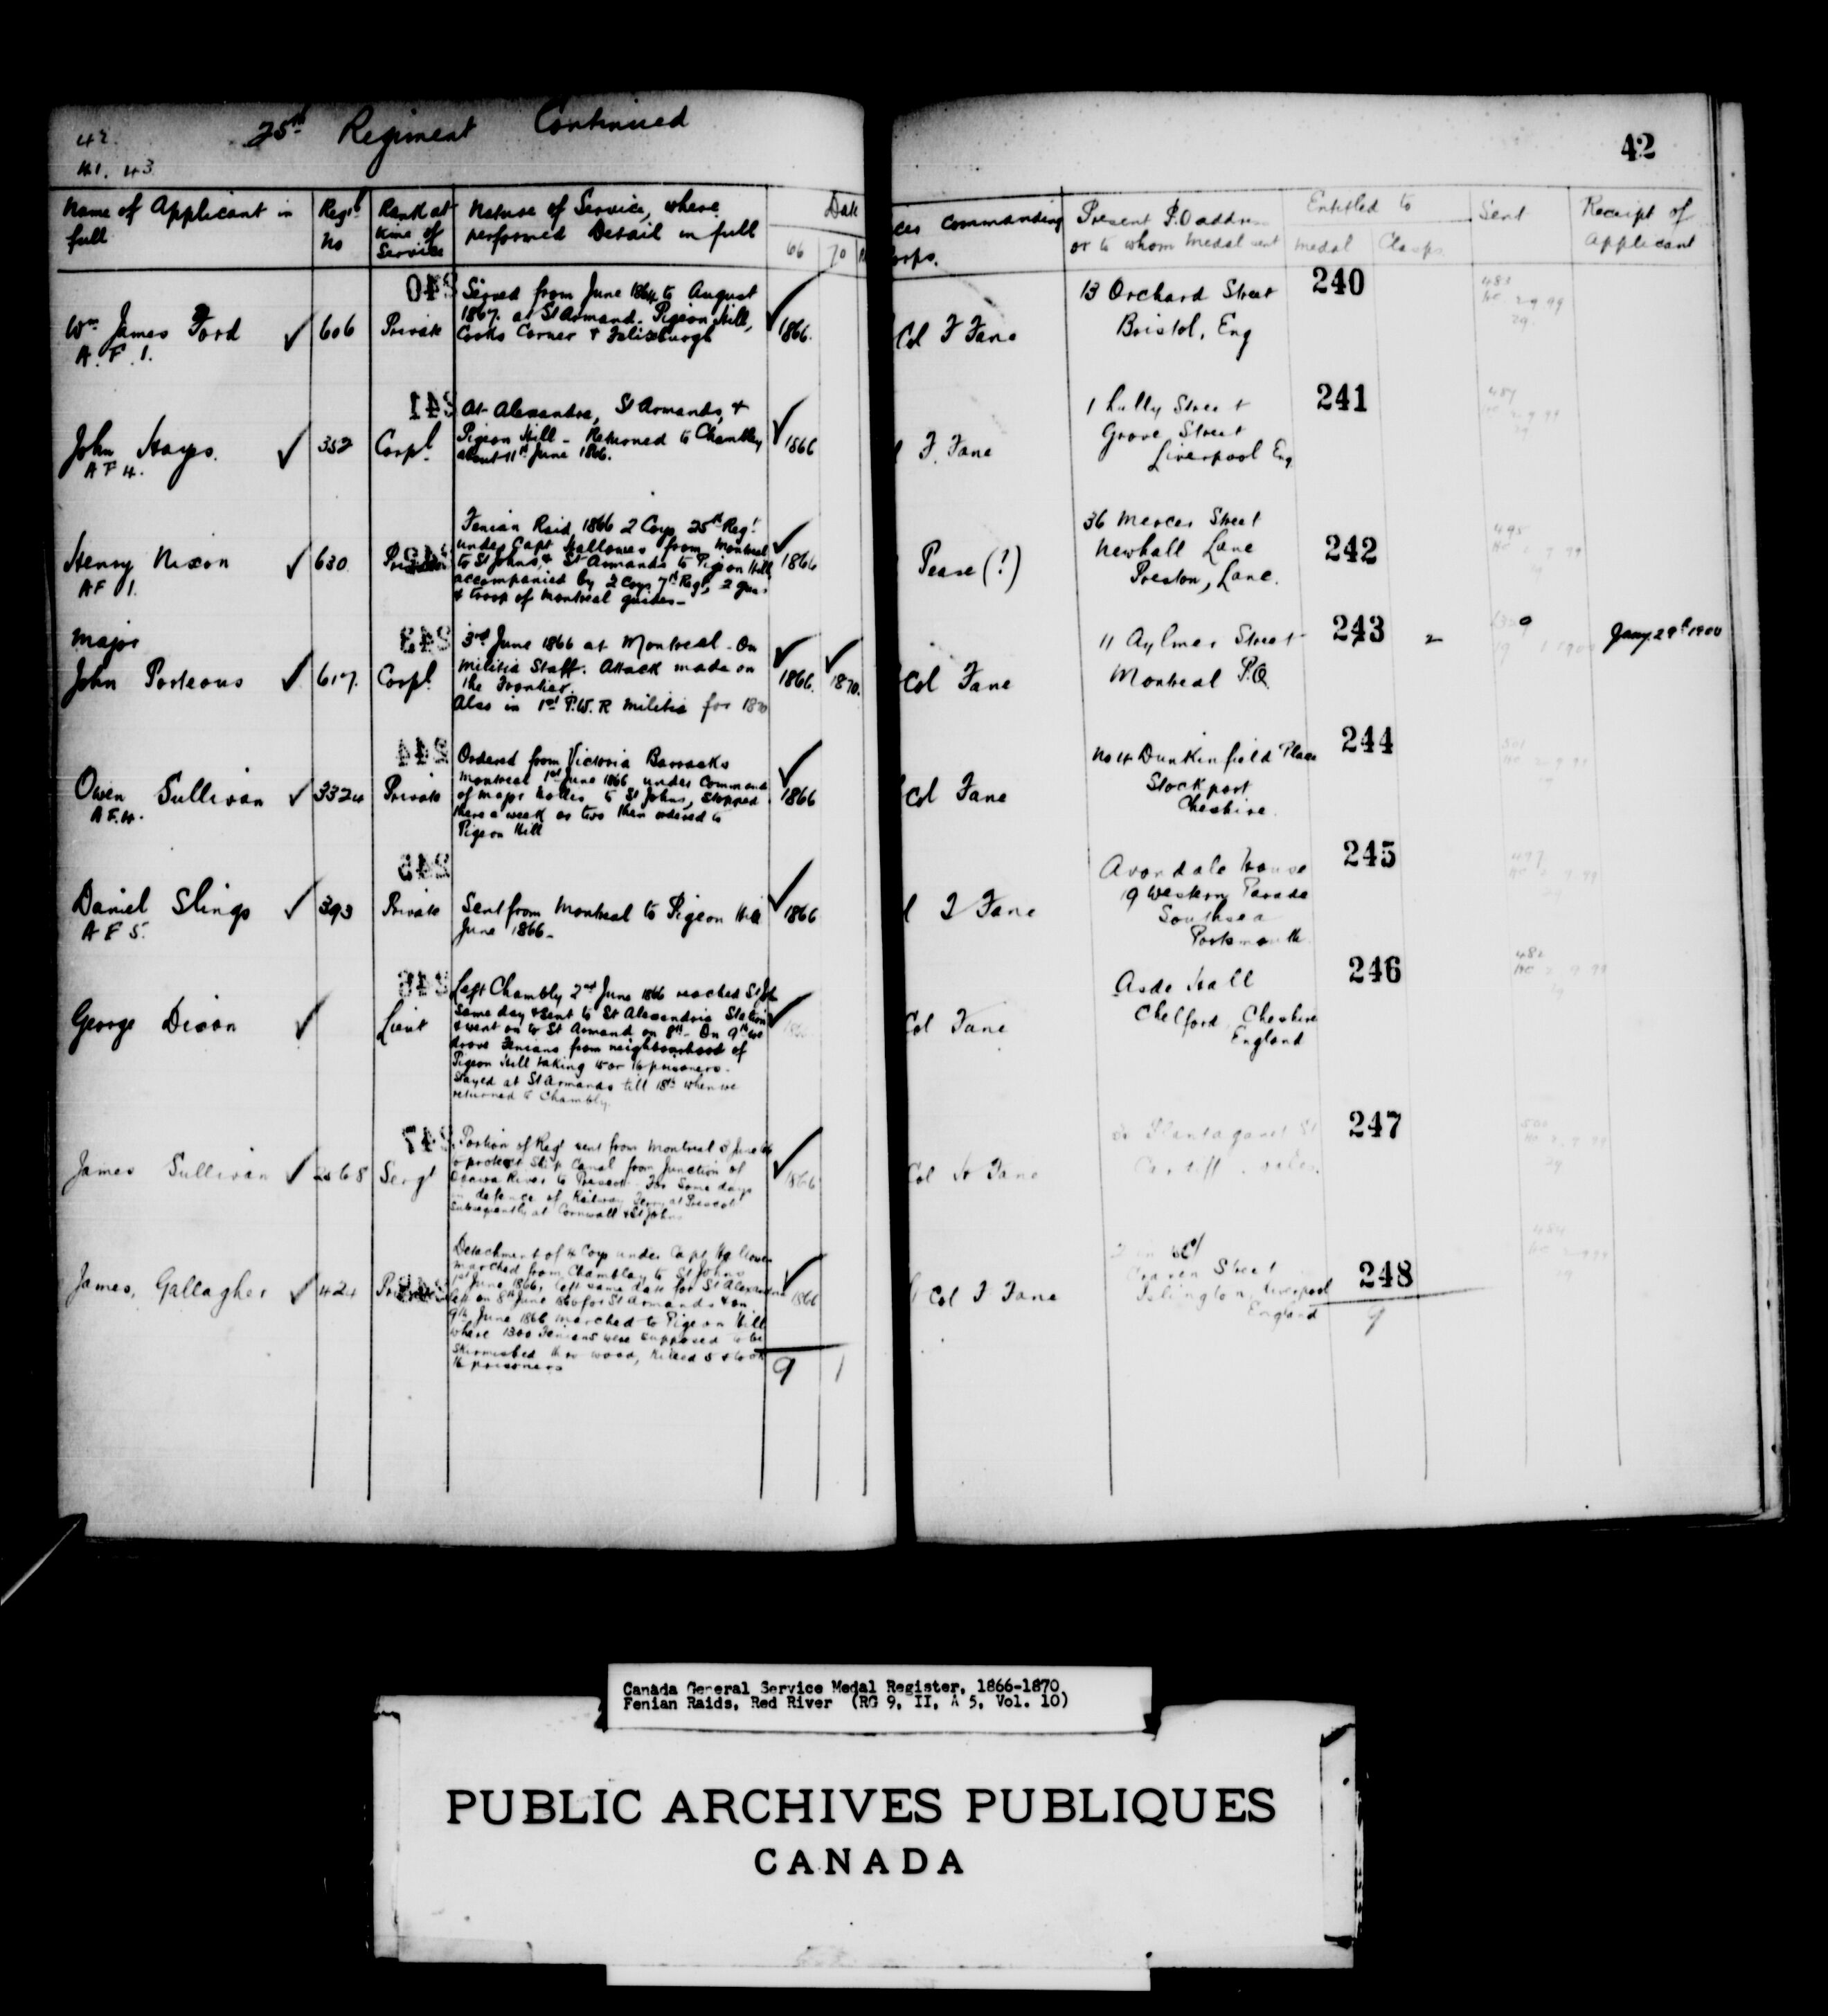 42.
41. 43
25th Regiment Continued
Name of Applicant in full
Regtl No
Rank at time of Service
Nature of Service, where performed Detail in full
Date
66 70
Wm James Ford
A.F.1.
606
Private
Served from June 1864 to August
1867. at St Armand. Pigeon Hill,
Cooks Corner &
1866.
John Hays.
A F 4.
352
Corpl
At Alexandra, St Armands, &
Pigeon Hill - Returned to Chambley
about 11th June 1866.
1866
Henry Nixon
AF 1.
630
Private
Fenian Raid 1866 2 Coys 25th Regt
under Capt Hallowes from Montreal
to St Johns, & St Armands to Pigeon Hill
accompanied by 2 Coys 7th Regt, 2 guns
& troop of Montreal guides -
1866
Major
John Porteous
617.
Corpl
3rd June 1866 at Montreal - On
Militia Staff. Attack made on
the Frontier.
Also in 1st P.W.R Militia for 1870
1866.
1870.
Owen Sullivan
A F.4.
3324
Private
Ordered from Victoria Barracks
Montreal 1st June 1866 under Command
of Major to St Johns, Stopped
there a week or two then ordered to
Pigeon Hill
1866
Daniel Slings
A F 5.
393
Private
Sent from Montreal to Pigeon Hill
June 1866 -
1866
George Dixon
Lieut
Left Chambly 2nd June 1866 reached St Joh
Same day & sent to St Alexandria Station
& went on to St Armand on 8th - On 9th we
drove Fenians from neighbourhood of
Pigeon Hill taking 15 or 16 prisoners -
Stayed at St Armands till 18th when we
returned to Chambly.
James Sullivan
68
Sergt
Portion of Regt sent from Montreal 3 June 66
to protect Ship Canal from Junction of
Ottawa River to Prescott. For Some days
in defence of Railway Ferry at Prescott
Subsequently at Cornwall & St Johns
1866
James, Gallagher
424
Private
Detachment of 4 Coys under Capt Hallowes
marched from Chambley to St Johns
1st June 1866, left same date for St Alexandria
left on 8th June 1866 for St Armands & on
9th June 1866 marched to Pigeon Hill
where 1300 Fenians were supposed to be
Skirmished thro wood, Killed 5 & took
16 prisoners
1866
9 1
42
cer commanding
orps.
Present P.O address
or to whom Medal sent
Entitled to
Medal Clasps
Sent
Receipt of
Applicant
Col F Fane
13 Orchard Street
Bristol, Eng
240
F. Fane
1 Lully Street
Grove Street
Liverpool Eng
241
Pease (?)
36 Mercer Street
Newhall Lane
Preston, Lanc.
242
Col Fane
11 Aylmer Street
Montreal P.Q.
243
2
Jany 29th 1900
Col Fane
No 4 Dunkinfield Place
Stockport
Cheshire.
244
F Fane
Avondale House
19 Western Parade
Southsea
Portsmouth
245
Col Fane
Asde Hall
Chelford, Cheshire
England
246
Col Fane
Plantaganet St
Cardiff.
247
Col F Fane
Craven Street
Islington, Liverpool
England
248
9
Canada General Service Medal Register, 1866-1870
Fenian Raids, Red River (RG 9, II, A 5, Vol. 10)
PUBLIC ARCHIVES PUBLIQUES
CANADA